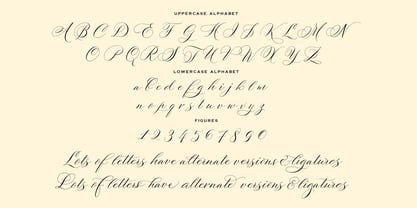 UPPERCASE ALPHABET
A B C D E F G H I J K L M N
O P Q R S T U V W X Y Z
LOWERCASE ALPHABET
a b c d e f g h i j k l m
n o p q r s t u v w x y z
FIGURES
1 2 3 4 5 6 7 8 9 0
Lots of letters have alternate versions & ligatures
Lots of letters have alternate versions & ligatures